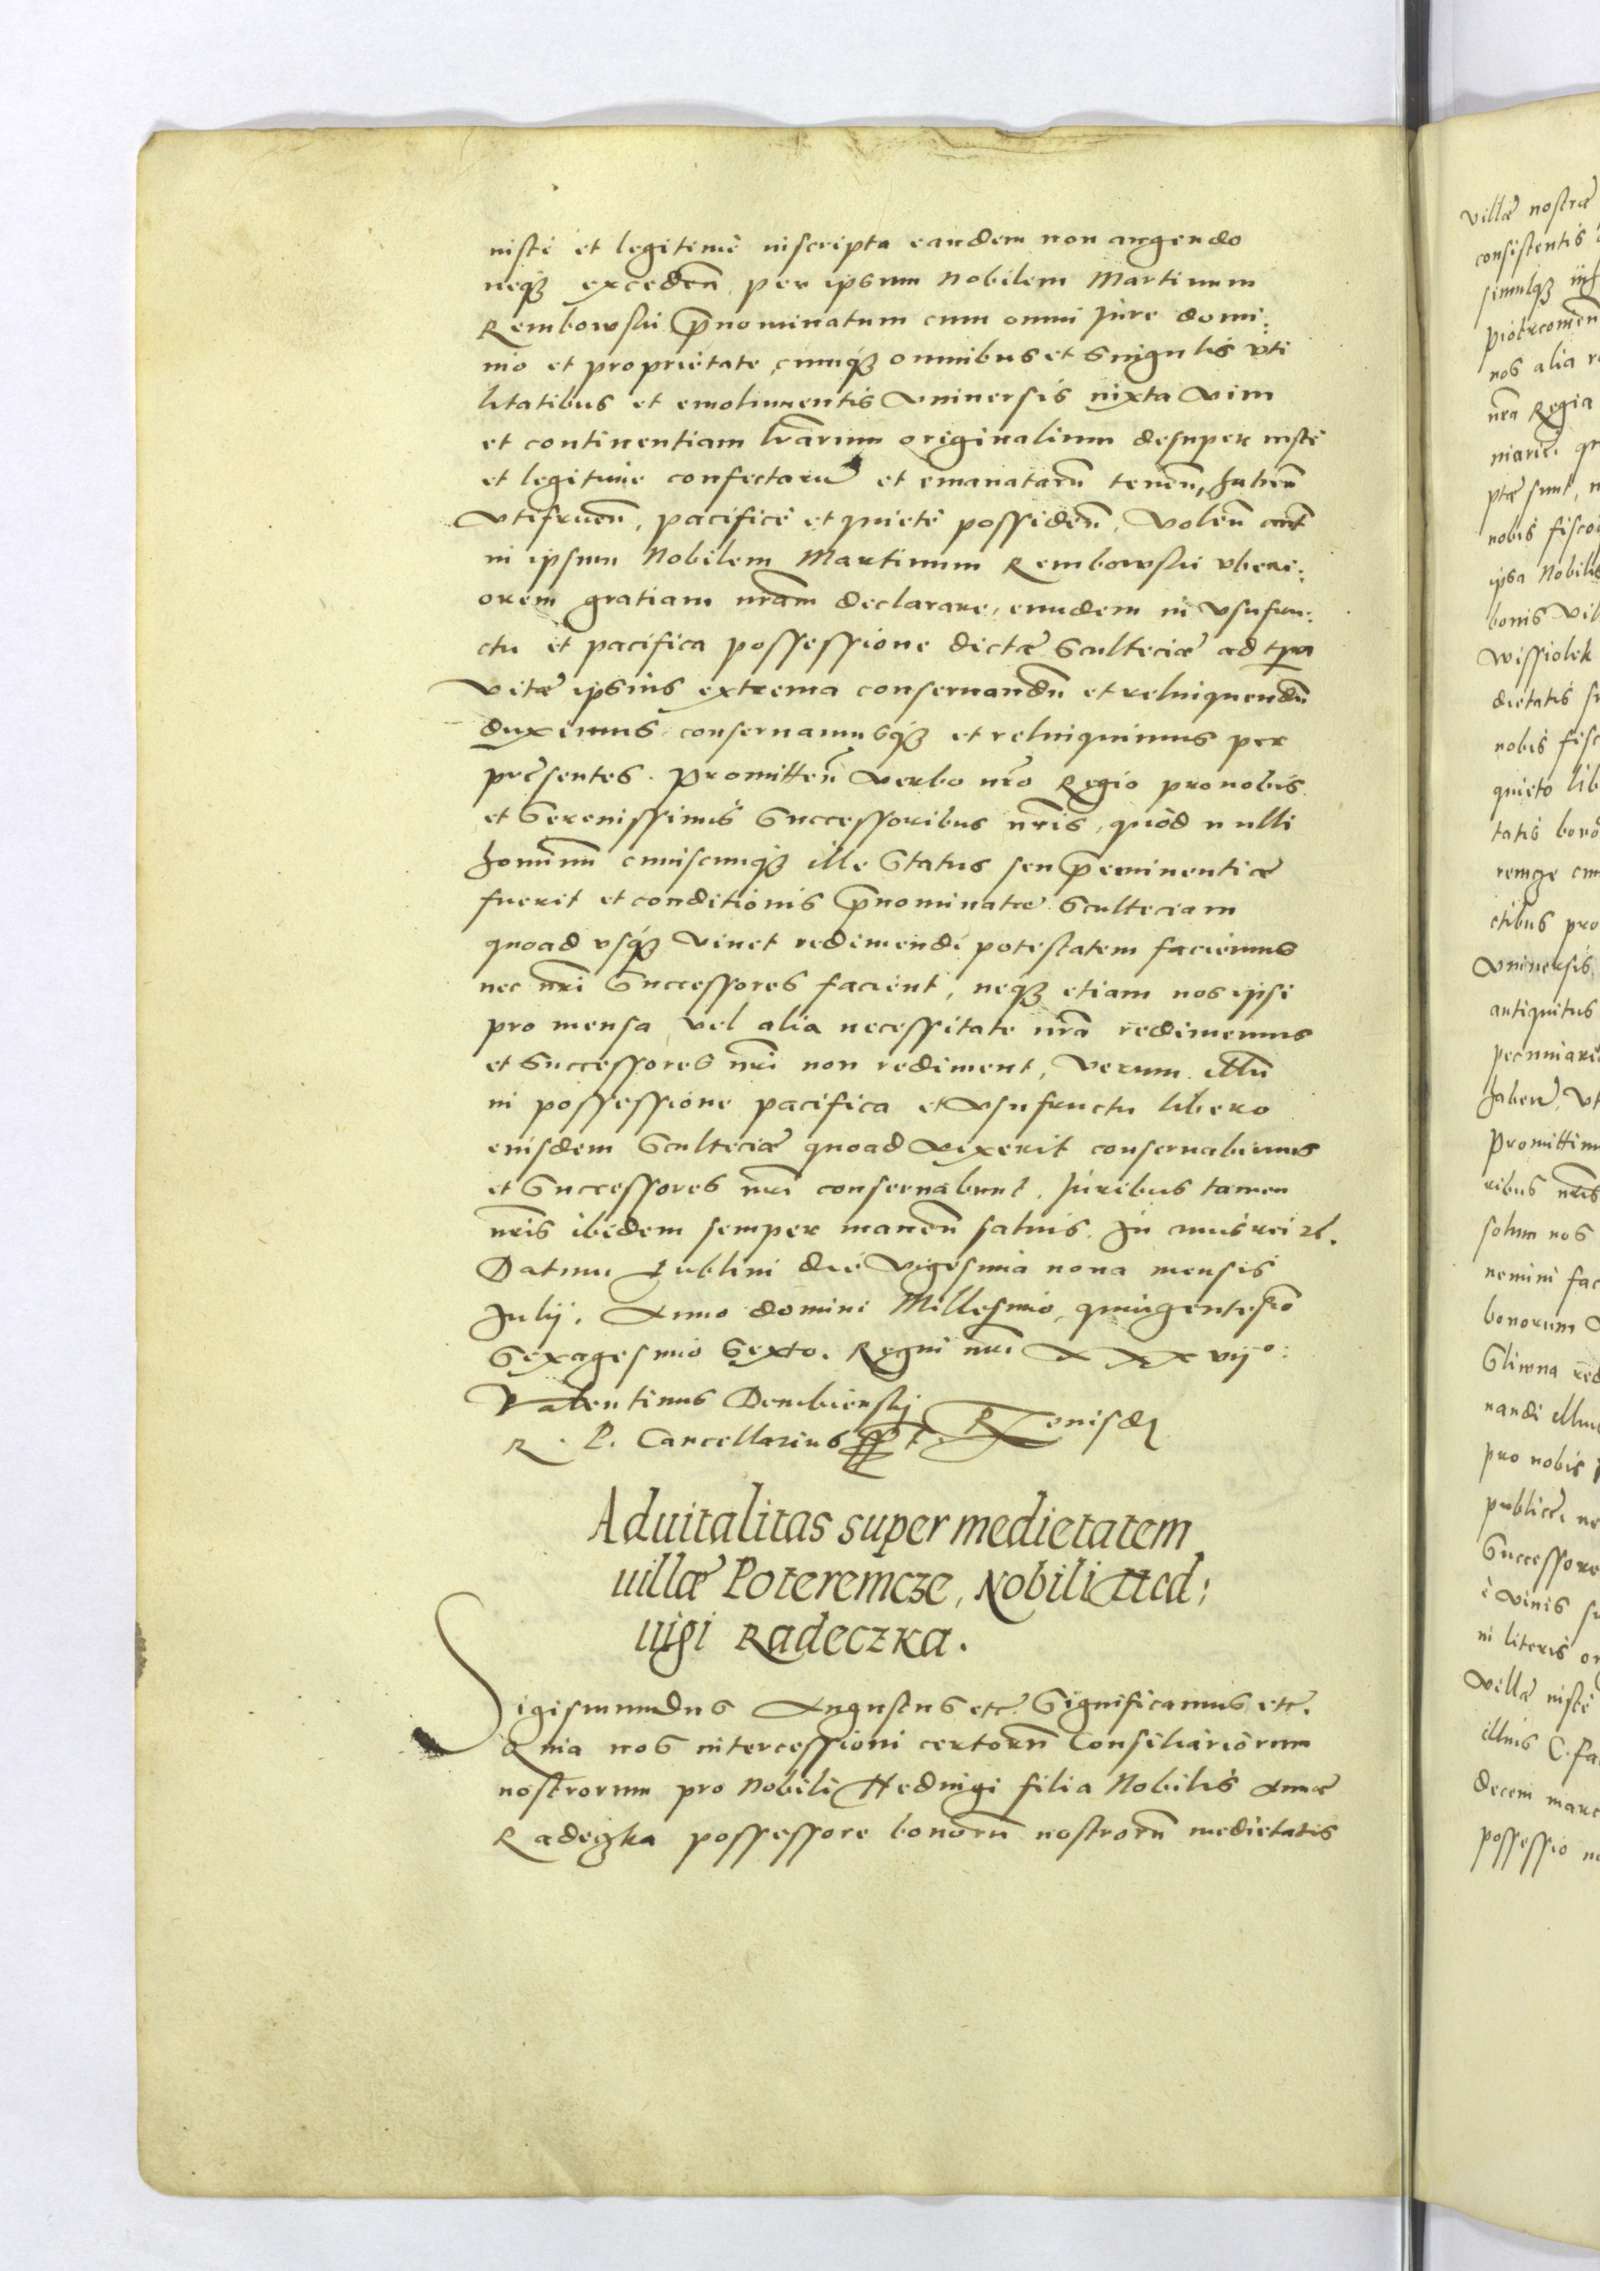 iuste et legitime inscripta eandem non augendo
neqȝ exceden̄. per ipsum Nobilem Martinum
Rembowski p̄nominatum cum omni Jure domi:
nio et proprietate, cumqȝ omnibus et singulis vti
litatibus et emolumentis vniuersis iuxta vim
et continentiam l̄rarum originalium desuper iuste
et legitime confectarū et emanatarū tenen̄, haben̄
vtifruen̄, pacifice et quiete possiden̄. Volen̄ aūt
in ipsum Nobilem Martinum Rembowski vberi:
orem gratiam n̄ram declarare, eundem in vsufru:
ctu et pacifica possessione dictæ Scultecię ad tp̄a
vitæ ipsius extrema conseruandū et relinquendū
duximus. conseruamusqȝ et relinquimus per
præsentes. Promitten̄ verbo nr̄o Regio pro nobis
et Serenissimis Successoribus nr̄is, quod nulli
hominum cuiuscunqȝ ille Status seu p̄eminentiæ
fuerit et conditionis p̄nominatæ Sculteciam
quoad vsqȝ viuet redimendi potestatem faciemus
nec nr̄i Successores facient, neqȝ etiam nos ipsi
pro mensa, vel alia necessitate nr̄a redimemus
et Successores nr̄i non rediment, verum illū
in possessione pacifica et vsufructu libero
eiusdem Sculteciæ quoad vixerit conseruabimus
et Successores nr̄i conseruabunt. Juribus tamen
nr̄is ibidem semper manen̄ saluis. In cuius rei ꝛc.
Datum Lublini die vigesima nona mensis
Julij. Anno domini Millesimo, quingentesīo
Sexagesimo Sexto. Regni nr̄i XXXvijº:
Valentinus Dembienskj
R. P. Cancellarius sspt. R̄ eiusd
Aduitalitas super medietatem
uillæ Poteremcze, Nobili Hed:
uigi Radeczka.
Sigismundus Augustus etc̄. Significamus etc̄.
Quia nos intercessioni certorū Consiliariorum
nostrorum pro Nobili Heduigi filia Nobilis Annæ
Radeczka possessore bonorū nostrorū medietatis
villæ nostræ
consistentis
simulqȝ
nos alia
nr̄a Regia
ptæ sunt,
nobis fisco
ipsa Nobilis
bonis
Wissiolek
dietatis
nobis
quieto
tatis
remcze
ctibus pro
vniuersis
antiquitus
pecuniari
haben̄,
Promittim
ribus nr̄is
solum nos
nemini fac
bonorum
Gliwna
nandi illu
pro nobis
publice, ne
Successore
in literis
villæ iuste
illius
decem marc
possessio